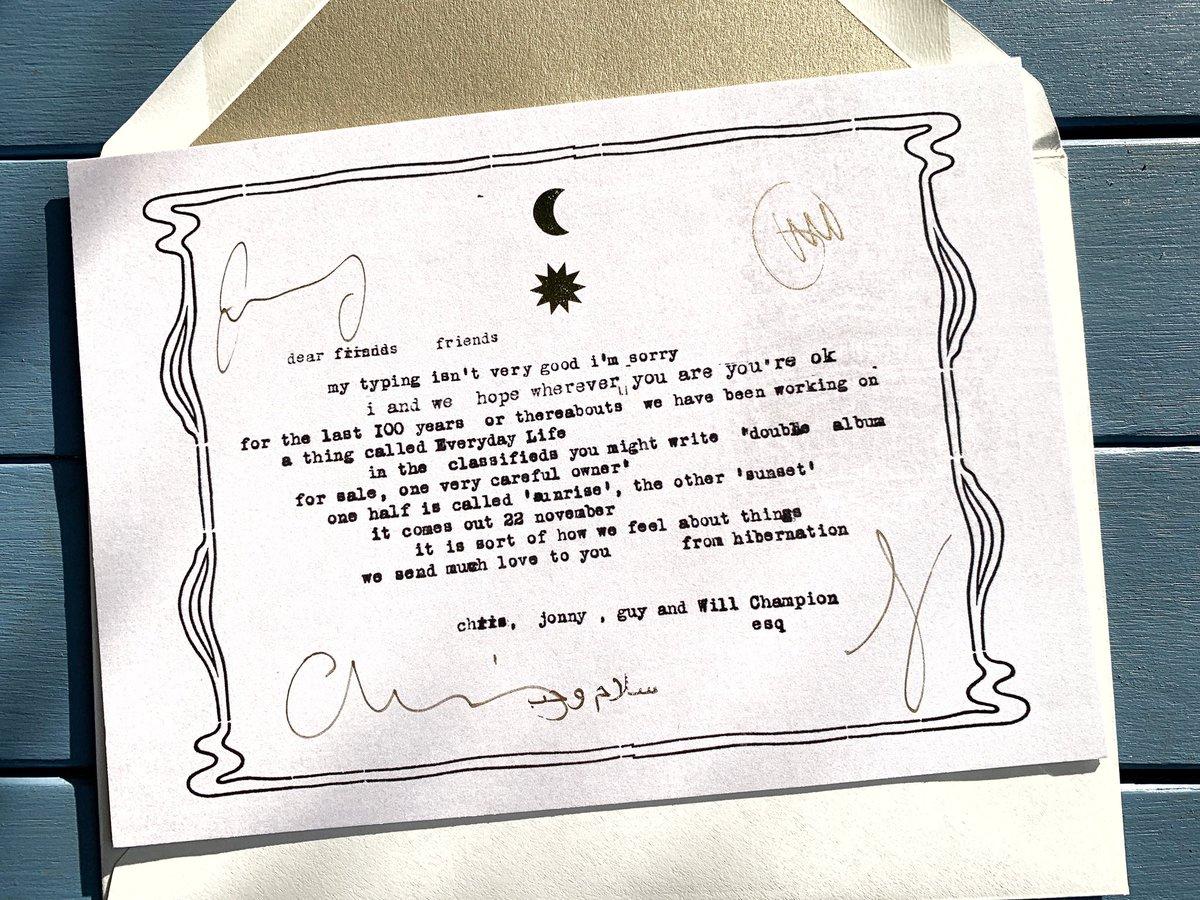 dear friends friends
my typing isn't very good i'm sorry
i and we hope wherever you are you're ok
for the last I00 years or thereabouts we have been working on
a thing called Everyday Life
in the classifieds you might write 'double album
for sale, one very careful owner'
one half is called 'sunrise', the other 'sunset'
it comes out 22 november
it is sort of how we feel about things
we send much love to you from hibernation
chris, jonny , guy and Will Champion
esq
Chris سلام و حب